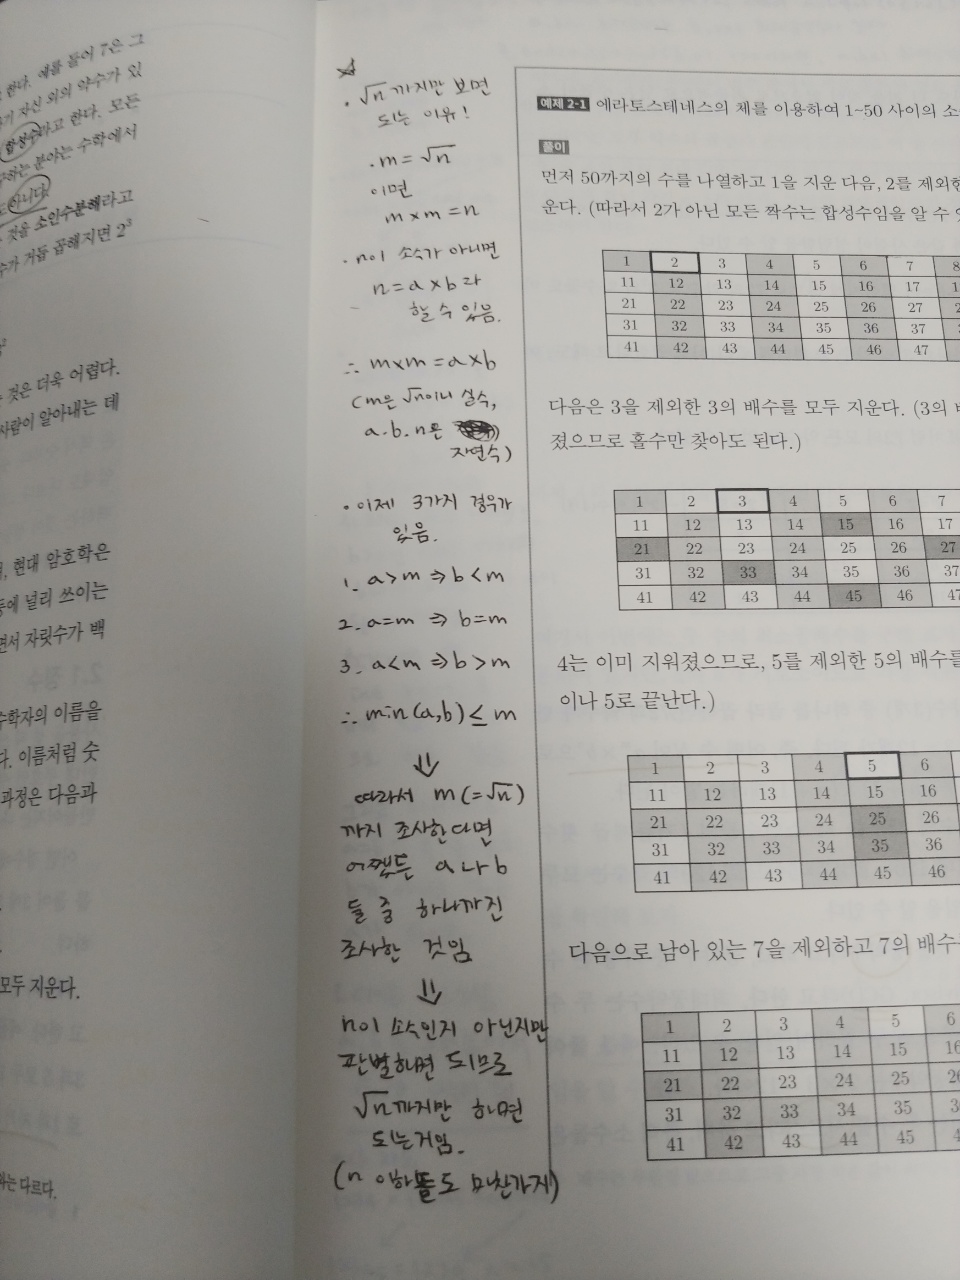 한다. 예를 들어 7은 그
자신 외의 약수가 있
합성수라고 한다. 모든
하는 분야는 수학에서
아니다.
것을 소인수분해라고
수가 거듭 곱해지면 2³
것은 더욱 어렵다.
사람이 알아내는 데
현대 암호학은
등에 널리 쓰이는
면서 자릿수가 백
수학자의 이름을
다. 이름처럼 숫
과정은 다음과
모두 지운다.
다르다.
· √n 까지만 보면
되는 이유!
· m = √n
이면
m × m = n
· n이 소수가 아니면
n = a × b 라
할 수 있음.
∴ m×m = a×b
(m은 √n이니 실수,
a.b.n은
자연수)
· 이제 3가지 경우가
있음.
1. a>m ⇒ b<m
2. a=m ⇒ b=m
3. a<m ⇒ b>m
∴ min(a,b) ≤ m
⇓
따라서 m(=√n)
까지 조사한다면
어쨌든 a나 b
둘 중 하나까진
조사한 것임
⇓
n이 소수인지 아닌지만
판별하면 되므로
√n까지만 하면
되는거임.
(n 이하들도 마찬가지)
예제 2-1 에라토스테네스의 체를 이용하여 1~50 사이의 소
풀이
먼저 50까지의 수를 나열하고 1을 지운 다음, 2를 제외한
운다. (따라서 2가 아닌 모든 짝수는 합성수임을 알 수 있
1 2 3 4 5 6 7 8
11 12 13 14 15 16 17
21 22 23 24 25 26 27
31 32 33 34 35 36 37
41 42 43 44 45 46 47
다음은 3을 제외한 3의 배수를 모두 지운다. (3의 배
졌으므로 홀수만 찾아도 된다.)
1 2 3 4 5 6 7
11 12 13 14 15 16 17
21 22 23 24 25 26 27
31 32 33 34 35 36 37
41 42 43 44 45 46 47
4는 이미 지워졌으므로, 5를 제외한 5의 배수를
이나 5로 끝난다.)
1 2 3 4 5 6
11 12 13 14 15 16
21 22 23 24 25 26
31 32 33 34 35 36
41 42 43 44 45 46
다음으로 남아 있는 7을 제외하고 7의 배수
1 2 3 4 5 6
11 12 13 14 15 16
21 22 23 24 25 26
31 32 33 34 35
41 42 43 44 45